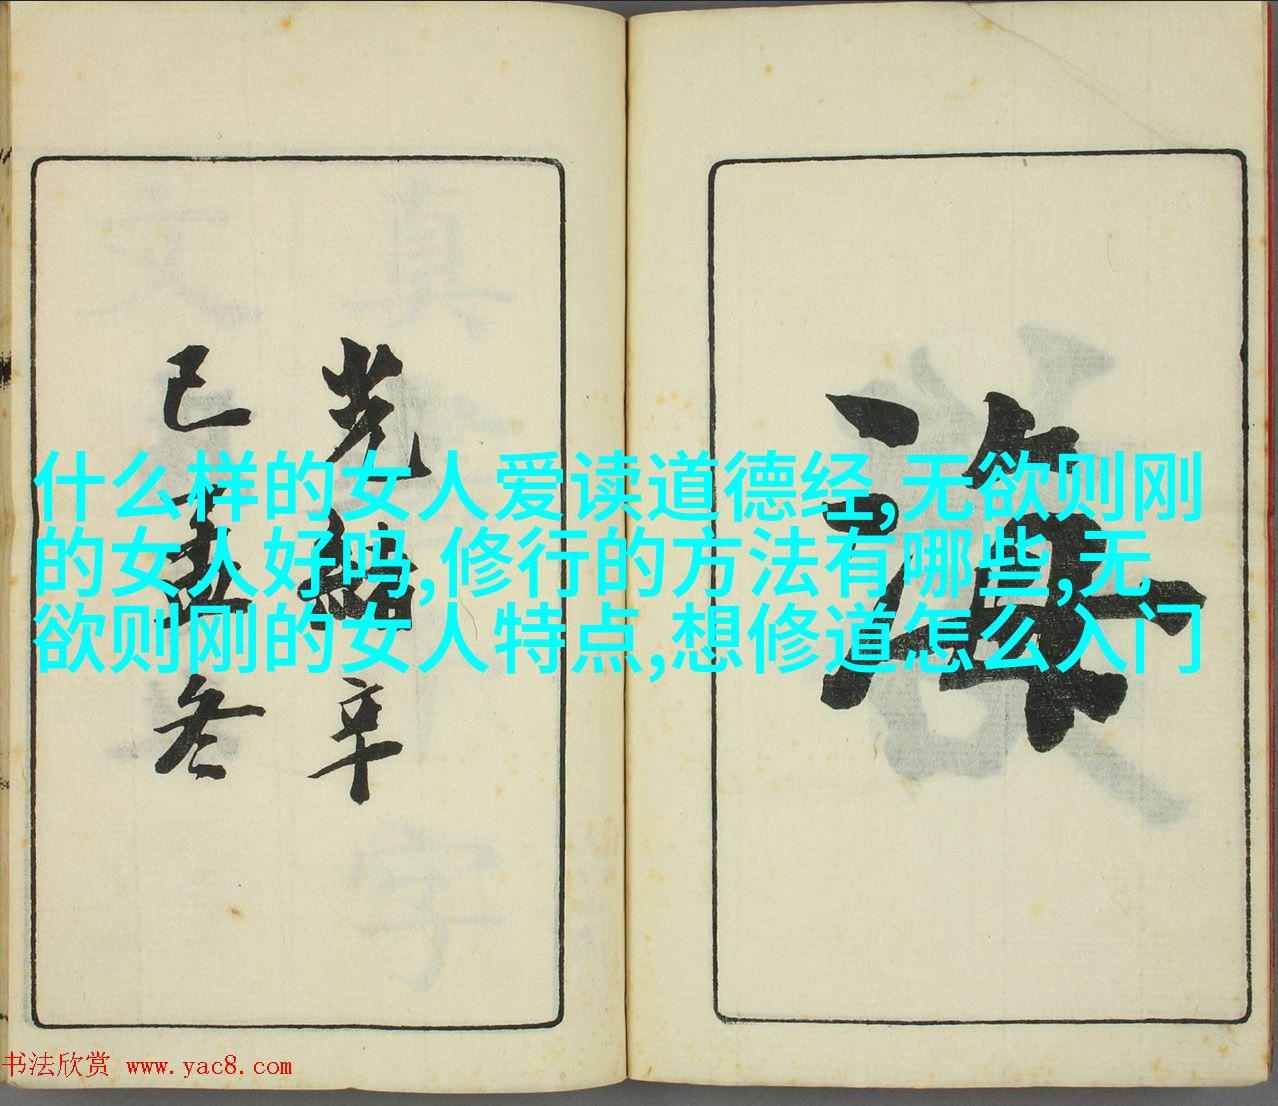 海
光緒辛
巳
冬
什么样的女人爱读道德经,无欲则刚
的女人好吗,修行的方法有哪些,无
欲则刚的女人特点,想修道怎么入门
书法欣赏 www.yac8.com